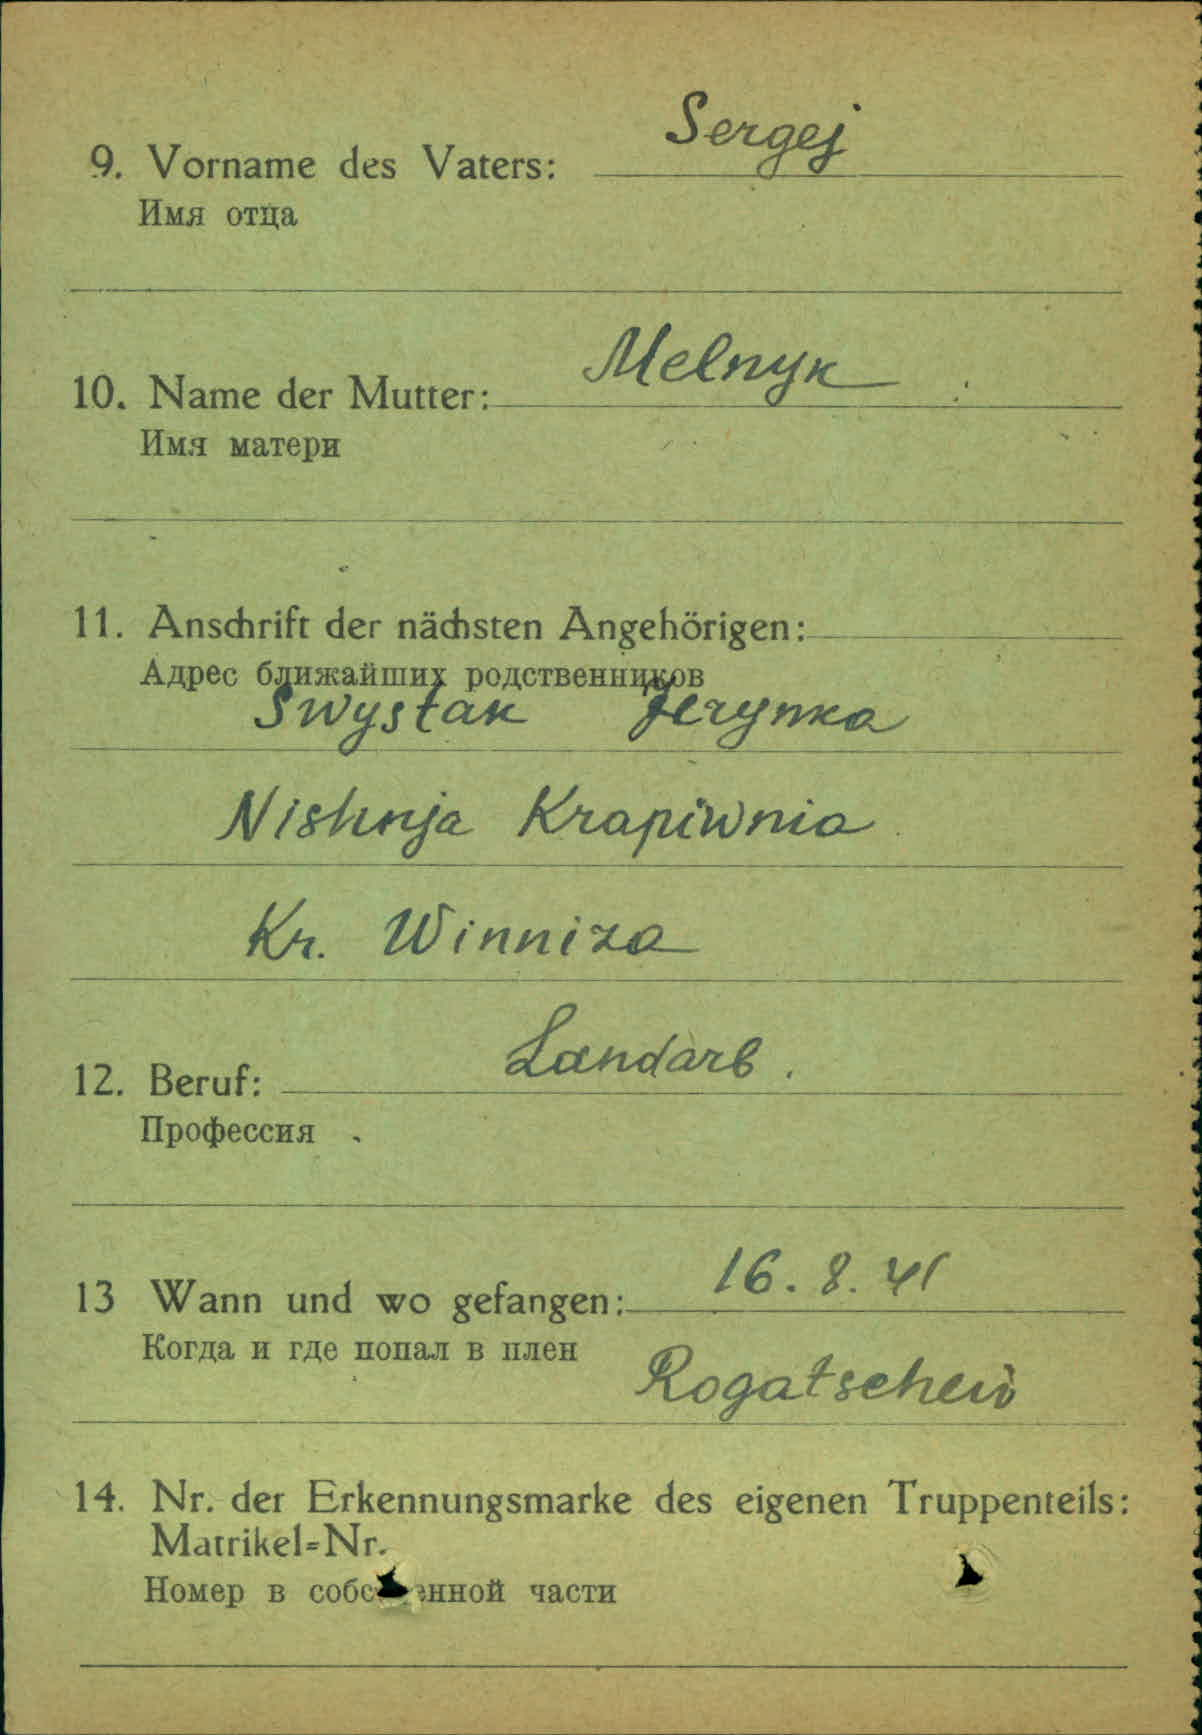 Sergej
9. Vorname des Vaters:
Имя отца
Melnyk
10. Name der Mutter:
Имя матери
11. Anschrift der nächsten Angehörigen:
Адрес ближайших родственников
Swystak Jerynka
Nishnja Krapiwnia
Kr. Winniza
Landarb.
12. Beruf:
Профессия
16. 8. 41
13 Wann und wo gefangen:
Когда и где попал в плен
Rogatschew
14. Nr. der Erkennungsmarke des eigenen Truppenteils:
Matrikel=Nr.
Номер в части